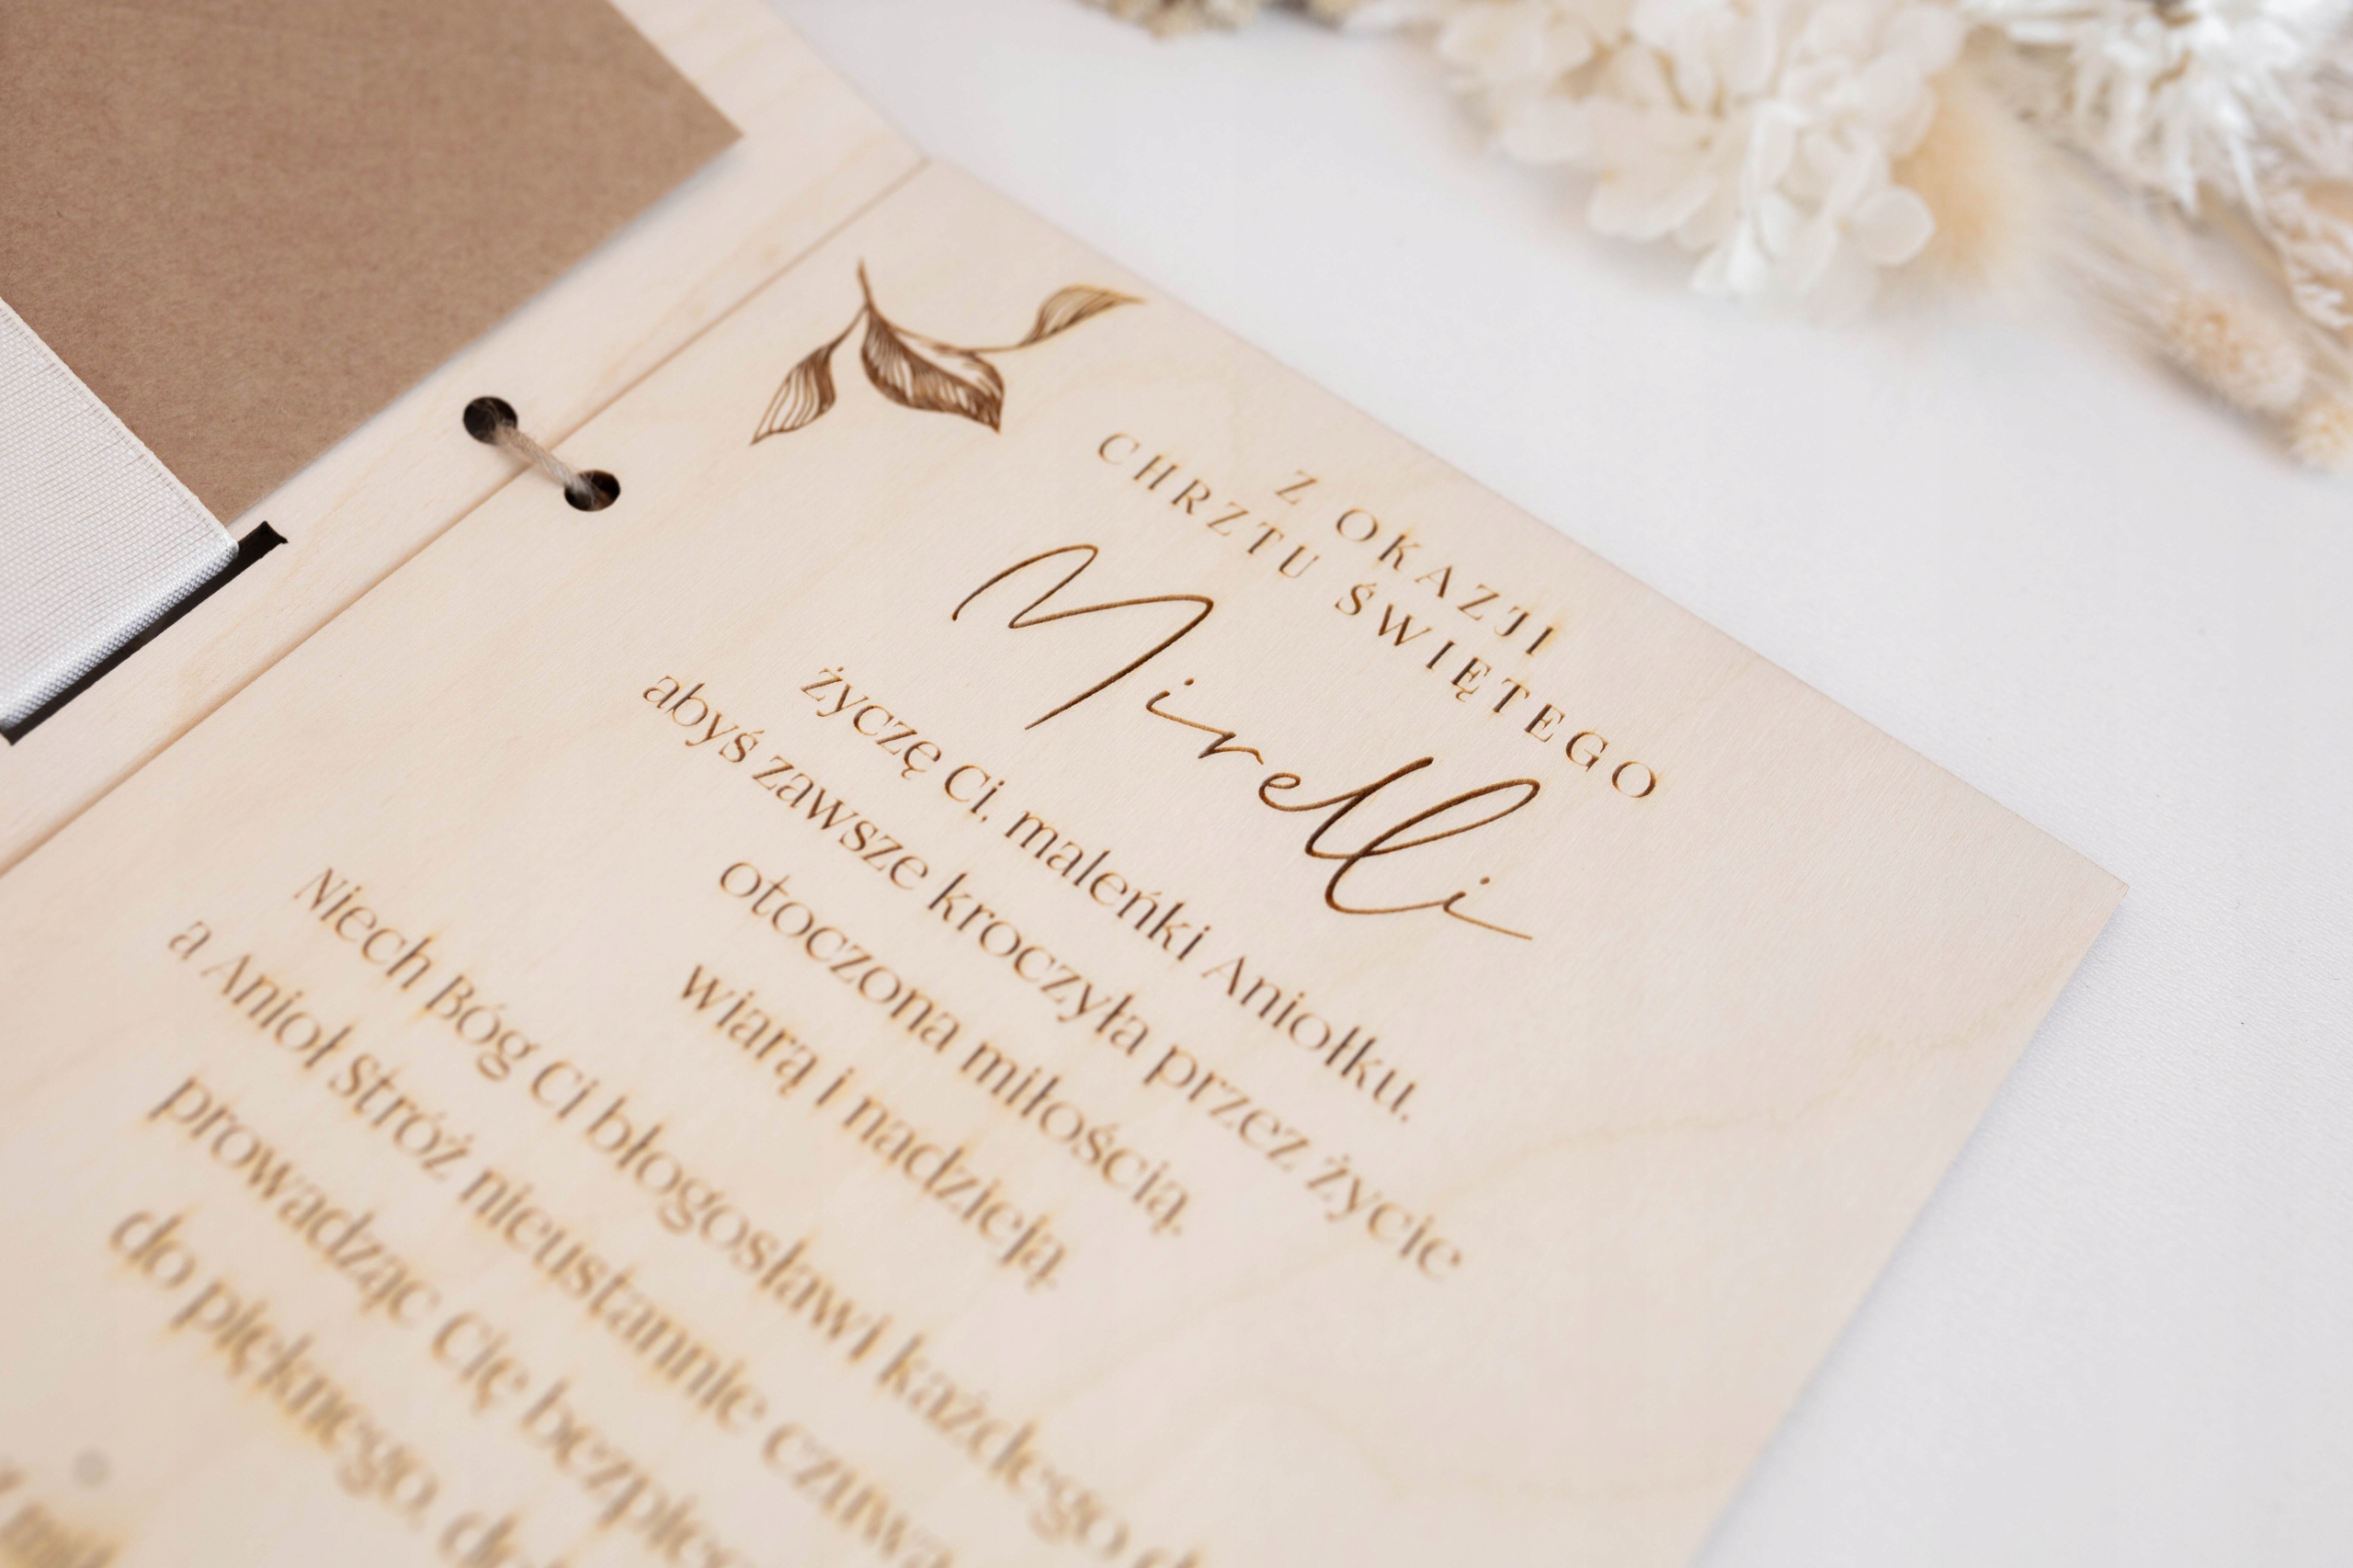 Z OKAZJI
CHRZTU ŚWIĘTEGO
Mirelli
życzę Ci, maleńki Aniołku,
abyś zawsze kroczyła przez życie
otoczona miłością,
wiarą i nadzieją.
Niech Bóg Ci błogosławi każdego
a Anioł Stróż nieustannie czuwa
prowadząc Cię
do pięknego,